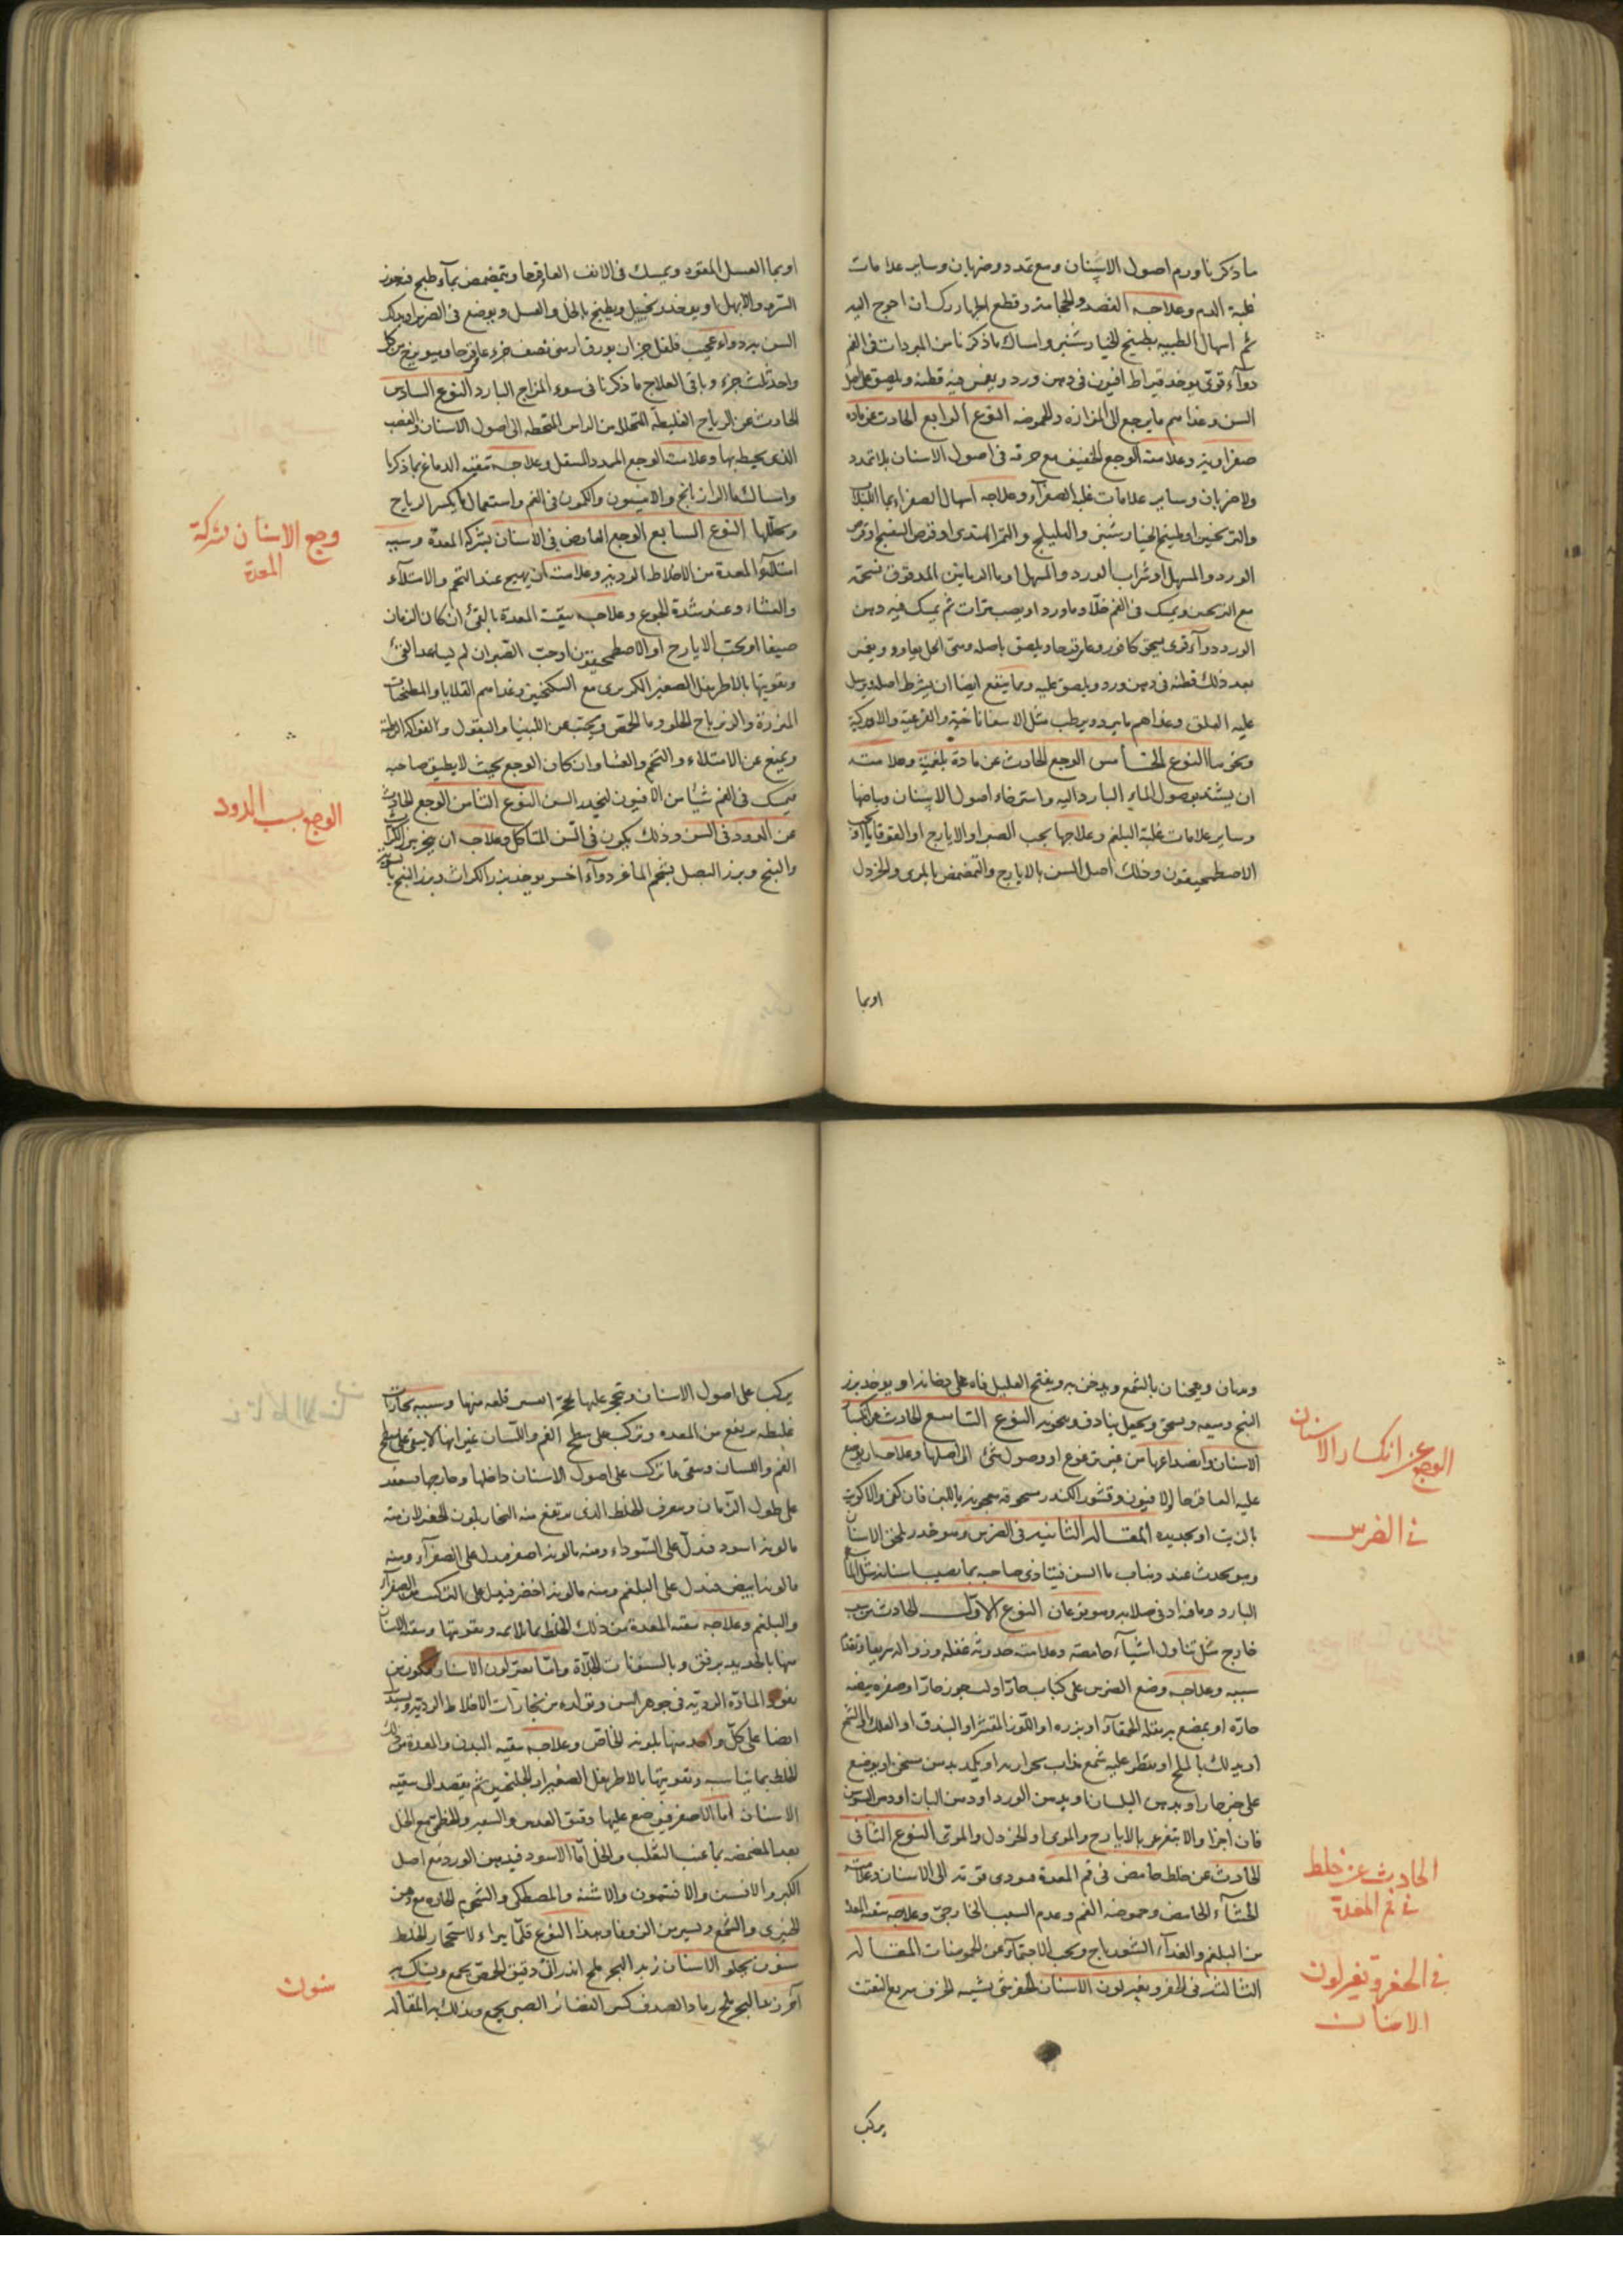 ما ذكرنا ورم اصول الاسنان ومع تمدد وضربان وساير علامات
غلبة الدم وعلاجه الفصد والحجامة وقطع الجهارك ان احوج اليه
ثم اسهال الطبيعة بطبيخ الخيارشنبر وامساك ما ذكرنا من المبردات في الفم
دواء قوى يوخذ قيراط افيون في دهن ورد ويغمس فيه قطنة ويلصق على اصل
السن وغذاهم ما يرجع الى المزازة والحموضة النوع الرابع الحادث عن مادة
صفراوية وعلامته الوجع الخفيف مع حرقة في اصول الاسنان بلا تمدد
ولا ضربان وساير علامات غلبة الصفراء وعلاجه اسهال الصفرا بماء اللبلاب
والترنجبين او طبيخ الخيارشنبر والهليلج والتمر الهندى او قرص البنفسج او قرص
الورد والمسهل او شراب الورد والمسهل او ماء الرمانين المدقوق بشحمه
مع الترنجبين ويمسك في الفم خلا وماورد او يصب مرات ثم يمسك فيه دهن
الورد دواء قوى يسحق كافور وعاقرقرحا ويلصق باصله ومتى انحل يعاود ويغمس
بعد ذلك قطنة في دهن ورد ويلصق عليه ومما ينفع ايضا ان يشرط اصله ويرسل
عليه العلق وغذاهم ما يبرد ويرطب مثل الاسفاناخية والقرعية
ونحوهما النوع الخامس الوجع الحادث عن مادة بلغمية وعلامته
ان يشتد بوصول الماء البارد اليه واسترخاء اصول الاسنان وبياضها
وساير علامات غلبة البلغم وعلاجها بحب الصبر او الايارج او القوقايا او
الاصطمحيقون ودلك اصل السن بالايارج والتمضمض بالمرى والخردل
اوبما
اوبما العسل المعقود ويمسك في الانف العاقرقرحا ويتمضمض بماء طبخ فيه جوز
السرو والابهل او يوخذ زنجبيل ويطبخ بالخل والعسل ويوضع في الضرس او يدلك
السن به دواء عجيب فلفل جزان بورق ارمنى نصف جزء عاقرقرحا وميويزج من كل
واحد ثلث جزء وباقى العلاج ما ذكرنا في سوء المزاج البارد النوع السادس
الحادث عن الرياح الغليظة المتحللة من الراس المنحطة الى اصول الاسنان والعصب
الذى يحيط بها وعلامته الوجع الممدد والتنقل وعلاجه تنقية الدماغ بما ذكرنا
وامساك ماء الرازيانج والانيسون والكمون في الفم واستعمال ما يكسر الرياح
ويحللها النوع السابع الوجع العارض في الاسنان بشركة المعدة وسببه
امتلاء المعدة من الاخلاط الردية وعلامته ان يهيج عند التخم والامتلاء
والعشاء وعند شدة الجوع وعلاجه تنقية المعدة بالقى ان كان الزمان
صيفا او بحب الايارج او الاصطمحيقون او حب الصبر ان لم يساعد القى
وتقويتها بالاطريفل الصغير الكزبرى مع السكنجبين وغذاهم القلايا والمطجنات
المزرزة والزيرباج الحلو وماء الحمص ويجتنب من اللبنيات والبقول والفواكه الرطبة
ويمنع عن الامتلاء والتخم والعشا وان كان الوجع بحيث لا يطيق صاحبه
فيمسك في الفم شيا من الافيون ليخدر السن النوع الثامن الوجع الحادث
عن الدود في السن وذلك يكون في السن المتاكل وعلاجه ان يبخر ببزر الكراث
والبنج وبزر البصل بشحم الماعز دواء اخر يوخذ بزر الكراث وبزر البنج بالسوية
وجع الاسنان بشركة
المعدة
الوجع بسبب الدود
ويدقان ويعجنان بالشمع ويدخن به ويفتح العليل فاه على دخانه او يوخذ بزر
البنج وميعة ويسحق ويجعل بنادق ويبخر به النوع التاسع الحادث عن انكسار
الاسنان وانصداعها من غير ترعزع او وصول شى الى اصلها وعلاجه ان يوضع
عليه العاقرقرحا والافيون وقشور الكندر مسحوقة معجونة باللبن فان كفى والا كويت
بالزيت او بحديده المقالة الثانية في الضرس وهو خدر يلحق الاسنان
وهو يحدث عند ذهاب ماء السن فيتاذى صاحبه بما يصيب اسنانه مثل الماء
البارد وما فيه ادنى صلابة وهو نوعان النوع الاول الحادث من سبب
خارج مثل تناول اشياء حامضة وعلامته حدوثه غفلة وزواله سريعا وتقدم
سببه وعلاجه وضع الضرس على كباب حار او لب جوز حار او صفرة بيضة
حارة او يمضغ بقلة الحمقاء او بزره او اللوز المقشر او البندق او العلك او الشمع
او يدلك بالملح او يقطر عليه شمع مذاب بحرارة او يكمد بدهن مسخن او يوضع
على خبز حار او بدهن البلسان او بدهن الورد او دهن البان او دهن السوسن
فان اجزا والا يتغرغر بالايارج والمرى او الخردل والمرى النوع الثانى
الحادث عن خلط حامض في فم المعدة فيودى قوته الى الاسنان وعلامته
الجشاء الحامض وحموضة الفم وعدم السبب الخارجى وعلاجه تنقية المعدة
من البلغم والغذاء الشورباج ويجب الاجتناب عن الحموضات المقالة
الثالثة في الحفر وتغير لون الاسنان الحفر شى يشبه الخزف سريع التفتت
الوجع عن انكسار الاسنان
في الضرس
الحادث عن خلط
في فم المعدة
في الحفر وتغير لون
الاسنان
يركب
يركب على اصول الاسنان وتحجر عليها لحجر العسر قلعه منها وسببه بخارات
غليظة ترتفع من المعدة وتركب على سطح الفم واللسان غير انها لا تبقى على سطح
الفم واللسان وتبقى ما تركب على اصول الاسنان داخلها وخارجها فينعقد
على طول الزمان ويعرف الخلط الذى يرتفع منه البخار بلون الحفر لان منه
ما لونه اسود فيدل على السوداء ومنه ما لونه اصفر فيدل على الصفراء ومنه
ما لونه ابيض فيدل على البلغم ومنه ما لونه اخضر فيدل على التركب من الصفراء
والبلغم وعلاجه تنقية المعدة من ذلك الخلط بما يلايمه وتقويتها وتنقية الاسنان
منها بالحديد برفق وبالسنونات الجلاءة واما تغير لون الاسنان فيكون من
نفوذ المادة الردية في جوهر السن وتولده من بخارات الاخلاط الردية ويستدل
ايضا على كل واحد منها بلونه الخاص وعلاجه تنقية البدن والمعدة من ذلك
الخلط بما يناسبه وتقويتها بالاطريفل الصغير او الجلنجبين ثم يقصد الى تنقية
الاسنان اما الاصفر فيوضع عليها دقيق العدس والشعير والخطمى مع الخل
بعد المضمضة بماء عنب الثعلب والخل اما الاسود فبدهن الورد مع اصل
الكبر والافسنتين والافتيمون والاشنة والمصطكى والشحوم الحارة مع دهن
الخيرى والشمع ويسير من الزوفا وهذا النوع قلما يبراء لاستحجار الخلط
سنون يجلو الاسنان زبد البحر ملح اندرانى دقيق الحمص يجمع ويستاك به
آخر زبد البحر ملح رماد الصدف كسر الغضائر الصينى يجمع ويدلك به المقالة
سنون